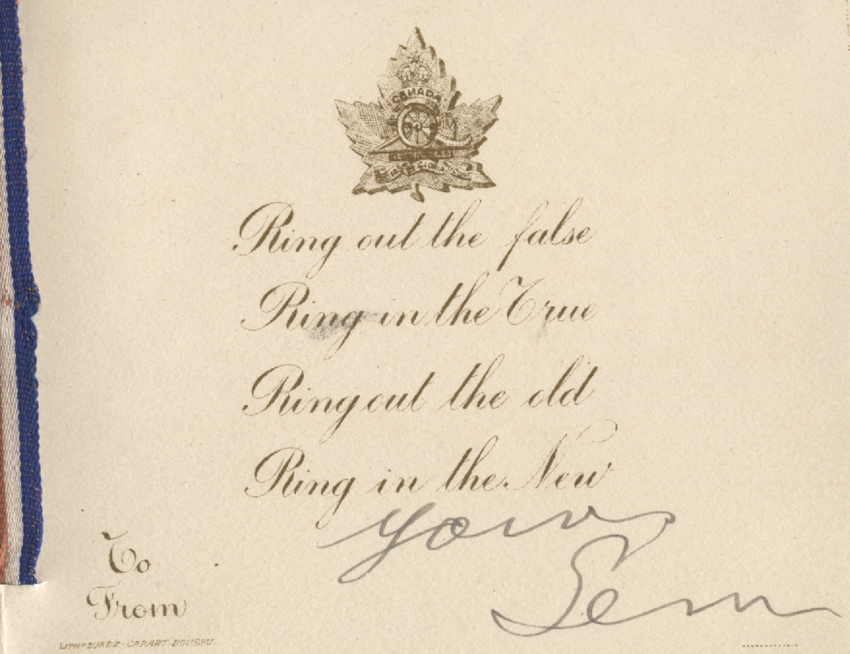 CANADA
Ring out the false
Ring in the True
Ring out the old
Ring in the New
Yours
Sem
To
From